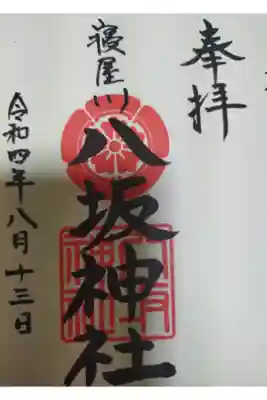 奉拝
寝屋川
八坂神社
令和四年八月十三日